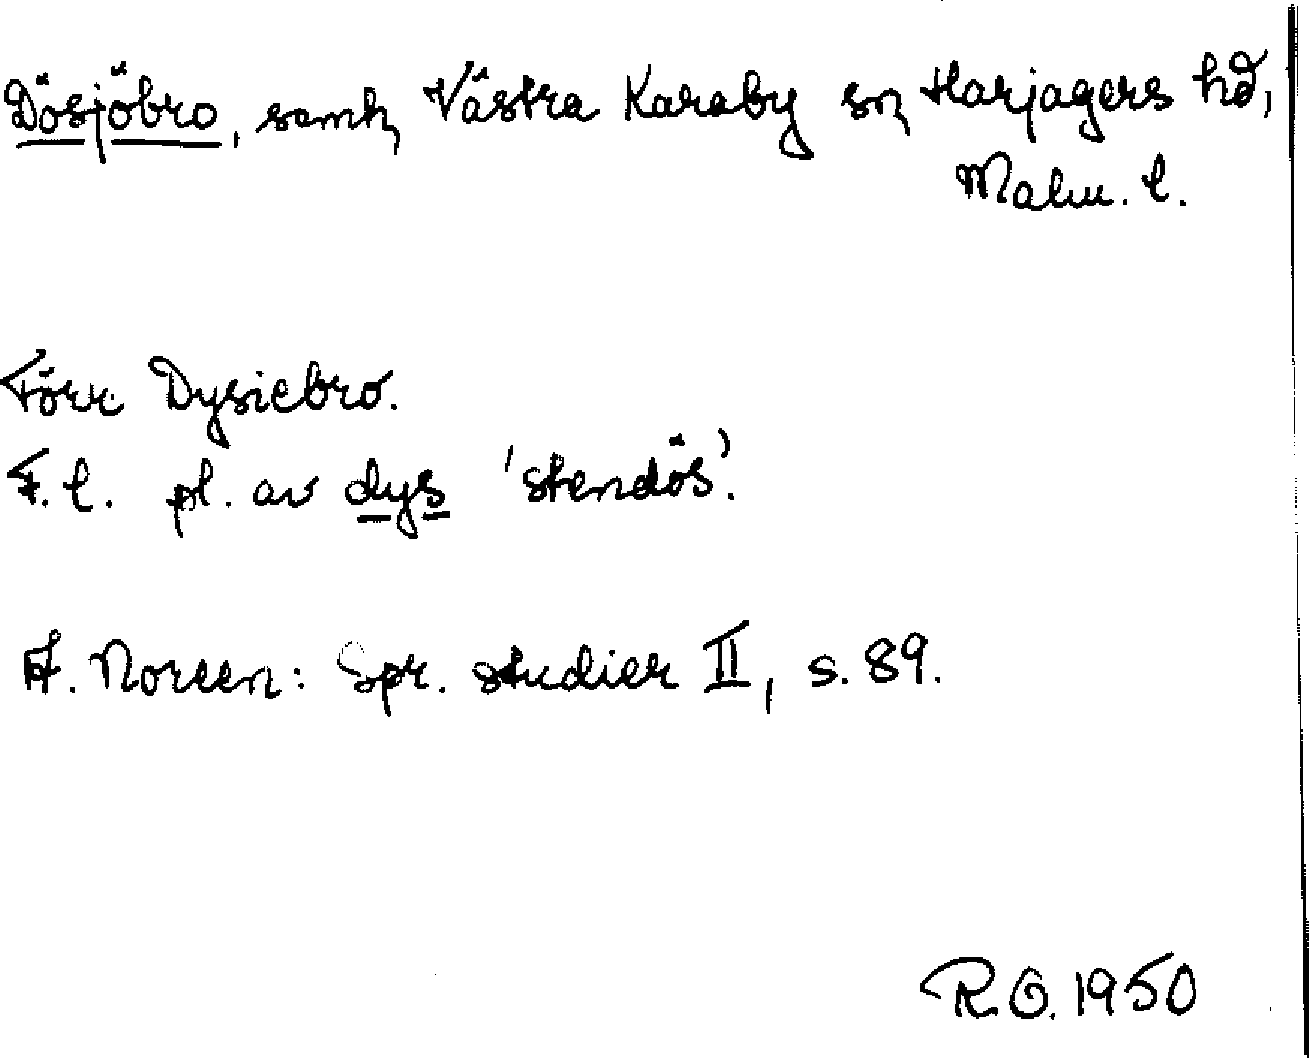 Dösjöbro, samh, Västra Karaby sn, Harjagers hd,
Malm. l.
Förr Dysiebro.
F. l. pl. av dys 'stendös'.
A. Noreen: Spr. studier II, s. 89.
R.O. 1950